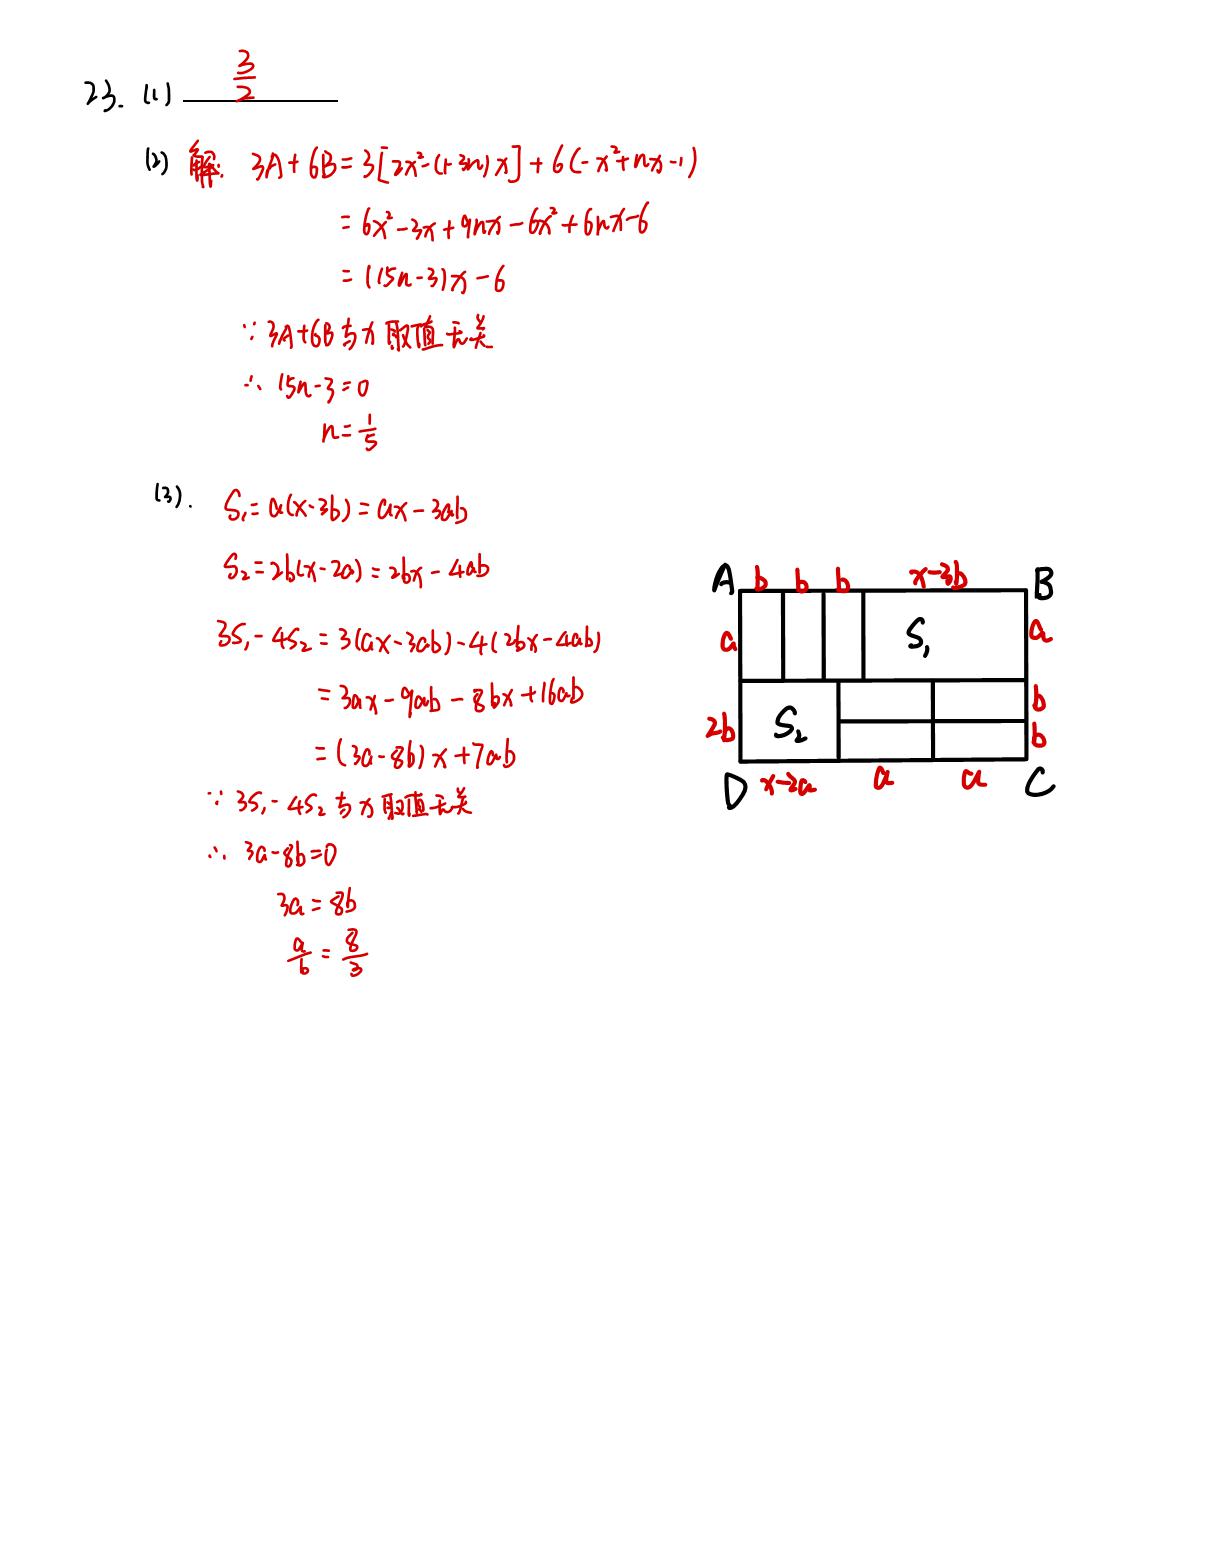 23. (1) 3/2
(2) 解: 3A+6B=3[2x²-(1-3n)x]+6(-x²+nx-1)
=6x²-3x+9nx-6x²+6nx-6
=(15n-3)x-6
∵3A+6B与x取值无关
∴15n-3=0
n=1/5
(3).
S₁=a(x-3b)=ax-3ab
S₂=2b(x-2a)=2bx-4ab
3S₁-4S₂=3(ax-3ab)-4(2bx-4ab)
=3ax-9ab-8bx+16ab
=(3a-8b)x+7ab
∵3S₁-4S₂与x取值无关
∴3a-8b=0
3a=8b
a/b=8/3
A b b b x-3b B
a S₁ a
2b S₂ b
b
D x-2a a a C